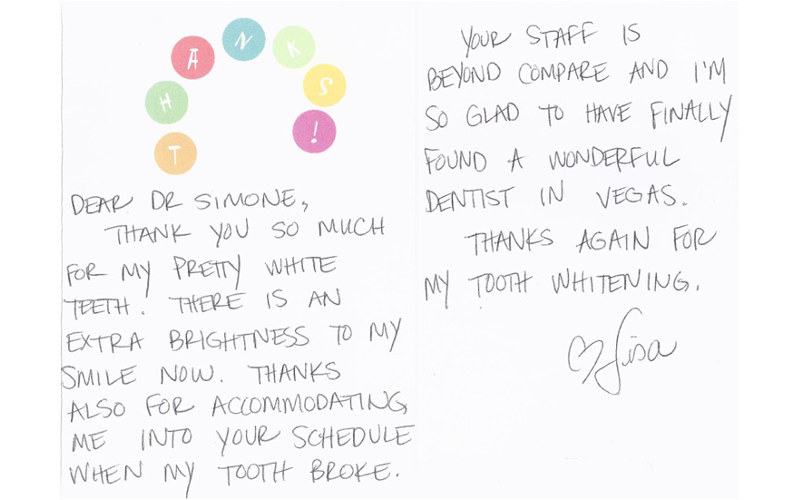 THANKS!
DEAR DR SIMONE,
THANK YOU SO MUCH
FOR MY PRETTY WHITE
TEETH! THERE IS AN
EXTRA BRIGHTNESS TO MY
SMILE NOW. THANKS
ALSO FOR ACCOMMODATING
ME INTO YOUR SCHEDULE
WHEN MY TOOTH BROKE.
YOUR STAFF IS
BEYOND COMPARE AND I'M
SO GLAD TO HAVE FINALLY
FOUND A WONDERFUL
DENTIST IN VEGAS.
THANKS AGAIN FOR
MY TOOTH WHITENING.
♡ Lisa